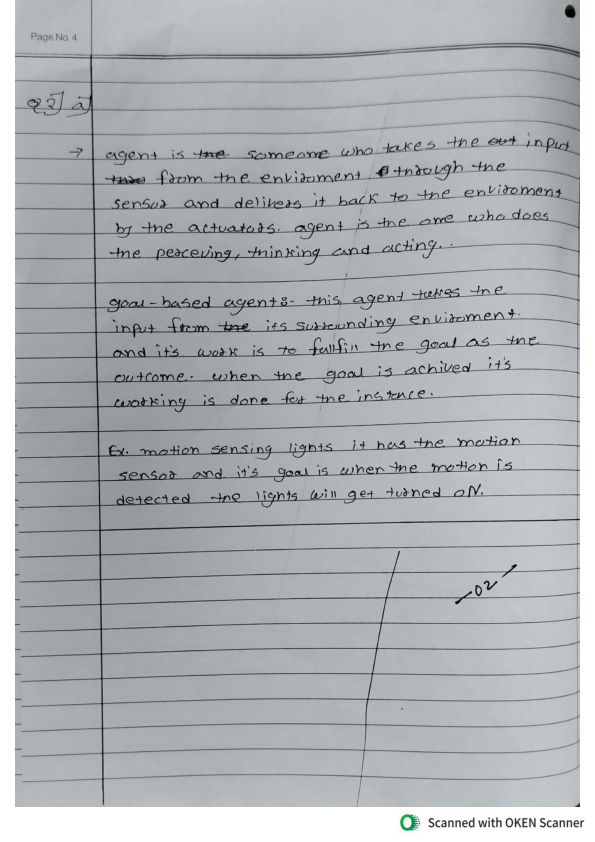 Page No. 4
Q 2] a]
→ agent is the someone who takes the out input
from the enviroment through the
sensor and delivers it back to the enviroment
by the actuators. agent is the one who does
the perceving, thinking and acting..
goal-based agent:- this agent takes the
input from the its surrounding enviroment.
and it's work is to fullfill the goal as the
outcome. when the goal is achived it's
working is done for the instence.
Ex. motion sensing lights it has the motion
sensor and it's goal is when the motion is
detected the lights will get turned ON.
-02-
Scanned with OKEN Scanner